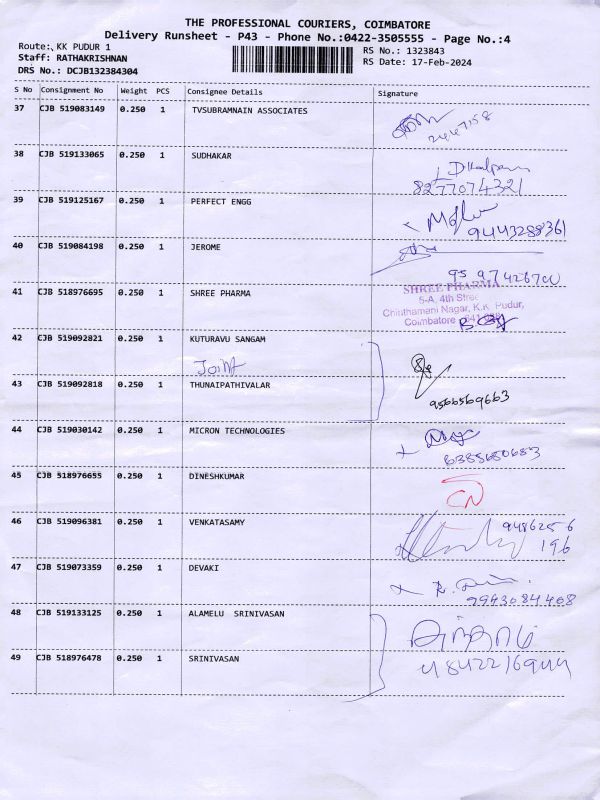 THE PROFESSIONAL COURIERS, COIMBATORE
Delivery Runsheet - P43 - Phone No.:0422-3505555 - Page No.:4
Route: KK PUDUR 1
RS No.: 1323843
Staff: RATHAKRISHNAN
RS Date: 17-Feb-2024
DRS No.: DCJB132384304
S No Consignment No Weight PCS Consignee Details Signature
37 CJB 519083149 0.250 1 TVSUBRAMNAIN ASSOCIATES
2447158
38 CJB 519133065 0.250 1 SUDHAKAR
8277074321
39 CJB 519125167 0.250 1 PERFECT ENGG
9443288361
40 CJB 519084198 0.250 1 JEROME
41 CJB 518976695 0.250 1 SHREE PHARMA
SHREE PHARMA
5-A, 4th Stree
Chinthamani Nagar, K.K. Pudur,
Coimbatore
42 CJB 519092821 0.250 1 KUTURAVU SANGAM
Joint
43 CJB 519092818 0.250 1 THUNAIPATHIVALAR
9566569663
44 CJB 519030142 0.250 1 MICRON TECHNOLOGIES
6385680683
45 CJB 518976655 0.250 1 DINESHKUMAR
CN
46 CJB 519096381 0.250 1 VENKATASAMY
9486256
196
47 CJB 519073359 0.250 1 DEVAKI
9943084408
48 CJB 519133125 0.250 1 ALAMELU SRINIVASAN
49 CJB 518976478 0.250 1 SRINIVASAN